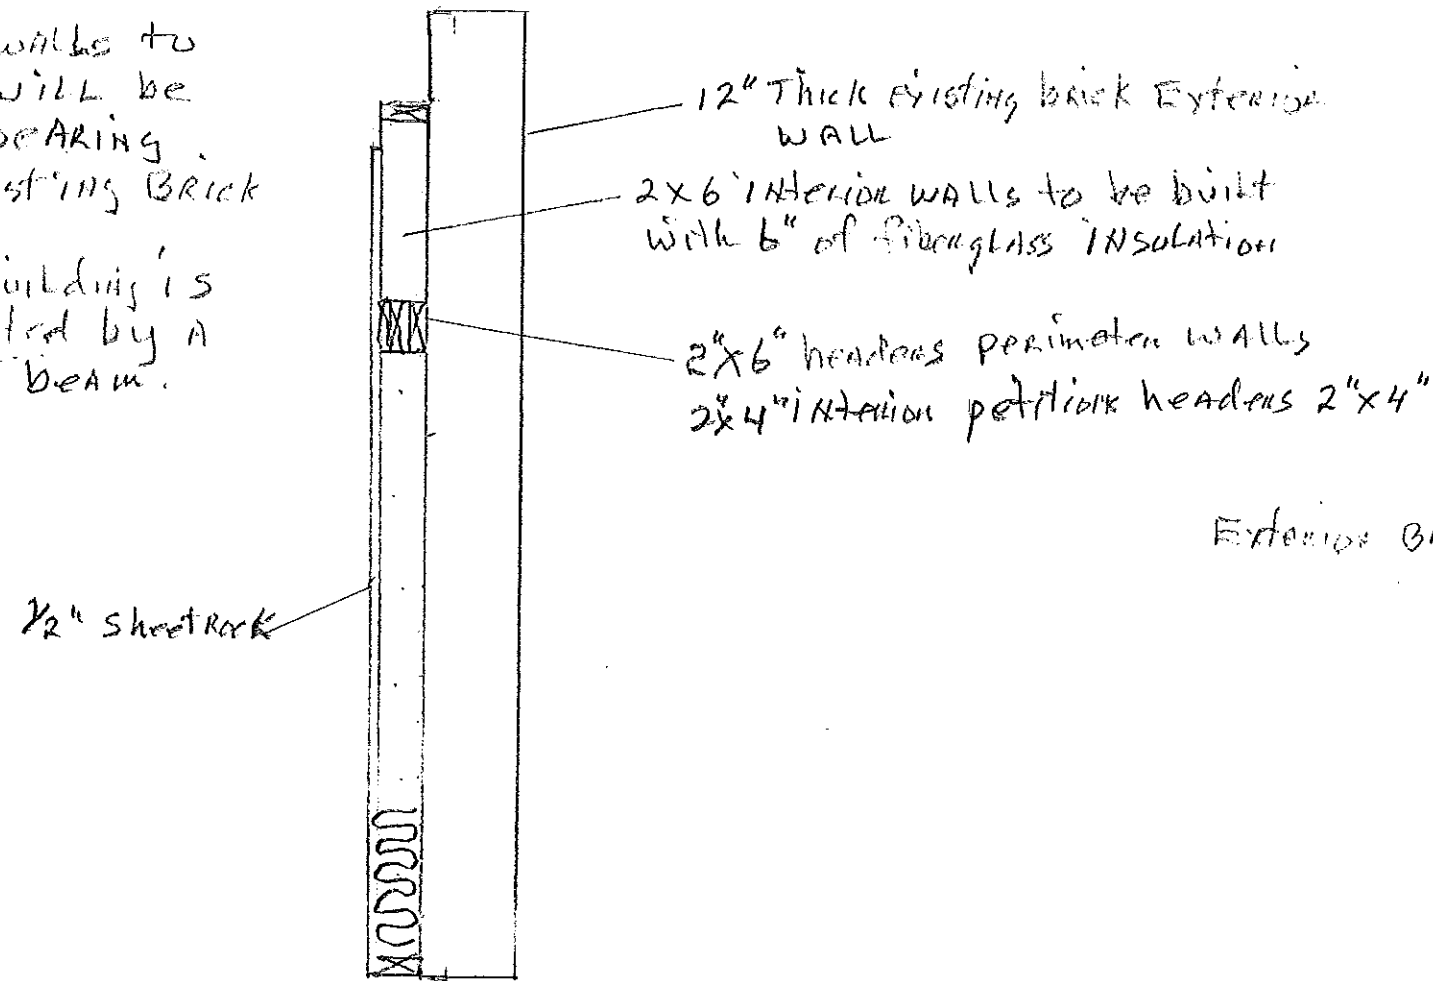 walls to
will be
beARiNg
sting BRick
uilding is
ted by A
beam.
12" Thick existing brick Exterior
WALL
2x6 iNterior WAlls to be built
with 6" of fiberglass iNsulation
2"x6" headers perimeter WAlls
2"x4" iNterior petitiork headers 2"x4"
Exterior
1/2" SheetRock